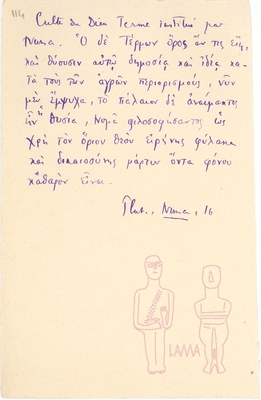 114
Culte du Dieu Terme institué par
Numa. Ὁ δὲ Τέρμων ὅρος ἄν τις εἴη,
καὶ θύουσιν αὐτῷ δημοσίᾳ καὶ ἰδίᾳ κα-
τὰ τοὺς τῶν ἀγρῶν περιορισμούς, νῦν
μὲν ἔμψυχα, τὸ παλαιὸν δὲ ἀναίμακτος
ἦν ἡ θυσία, Νομᾶ φιλοσοφήσαντος ὡς
χρὴ τὸν ὅριον θεὸν εἰρήνης φύλακα
καὶ δικαιοσύνης μάρτυν ὄντα φόνου
καθαρὸν εἶναι.
Plut., Numa, 16
LAMA